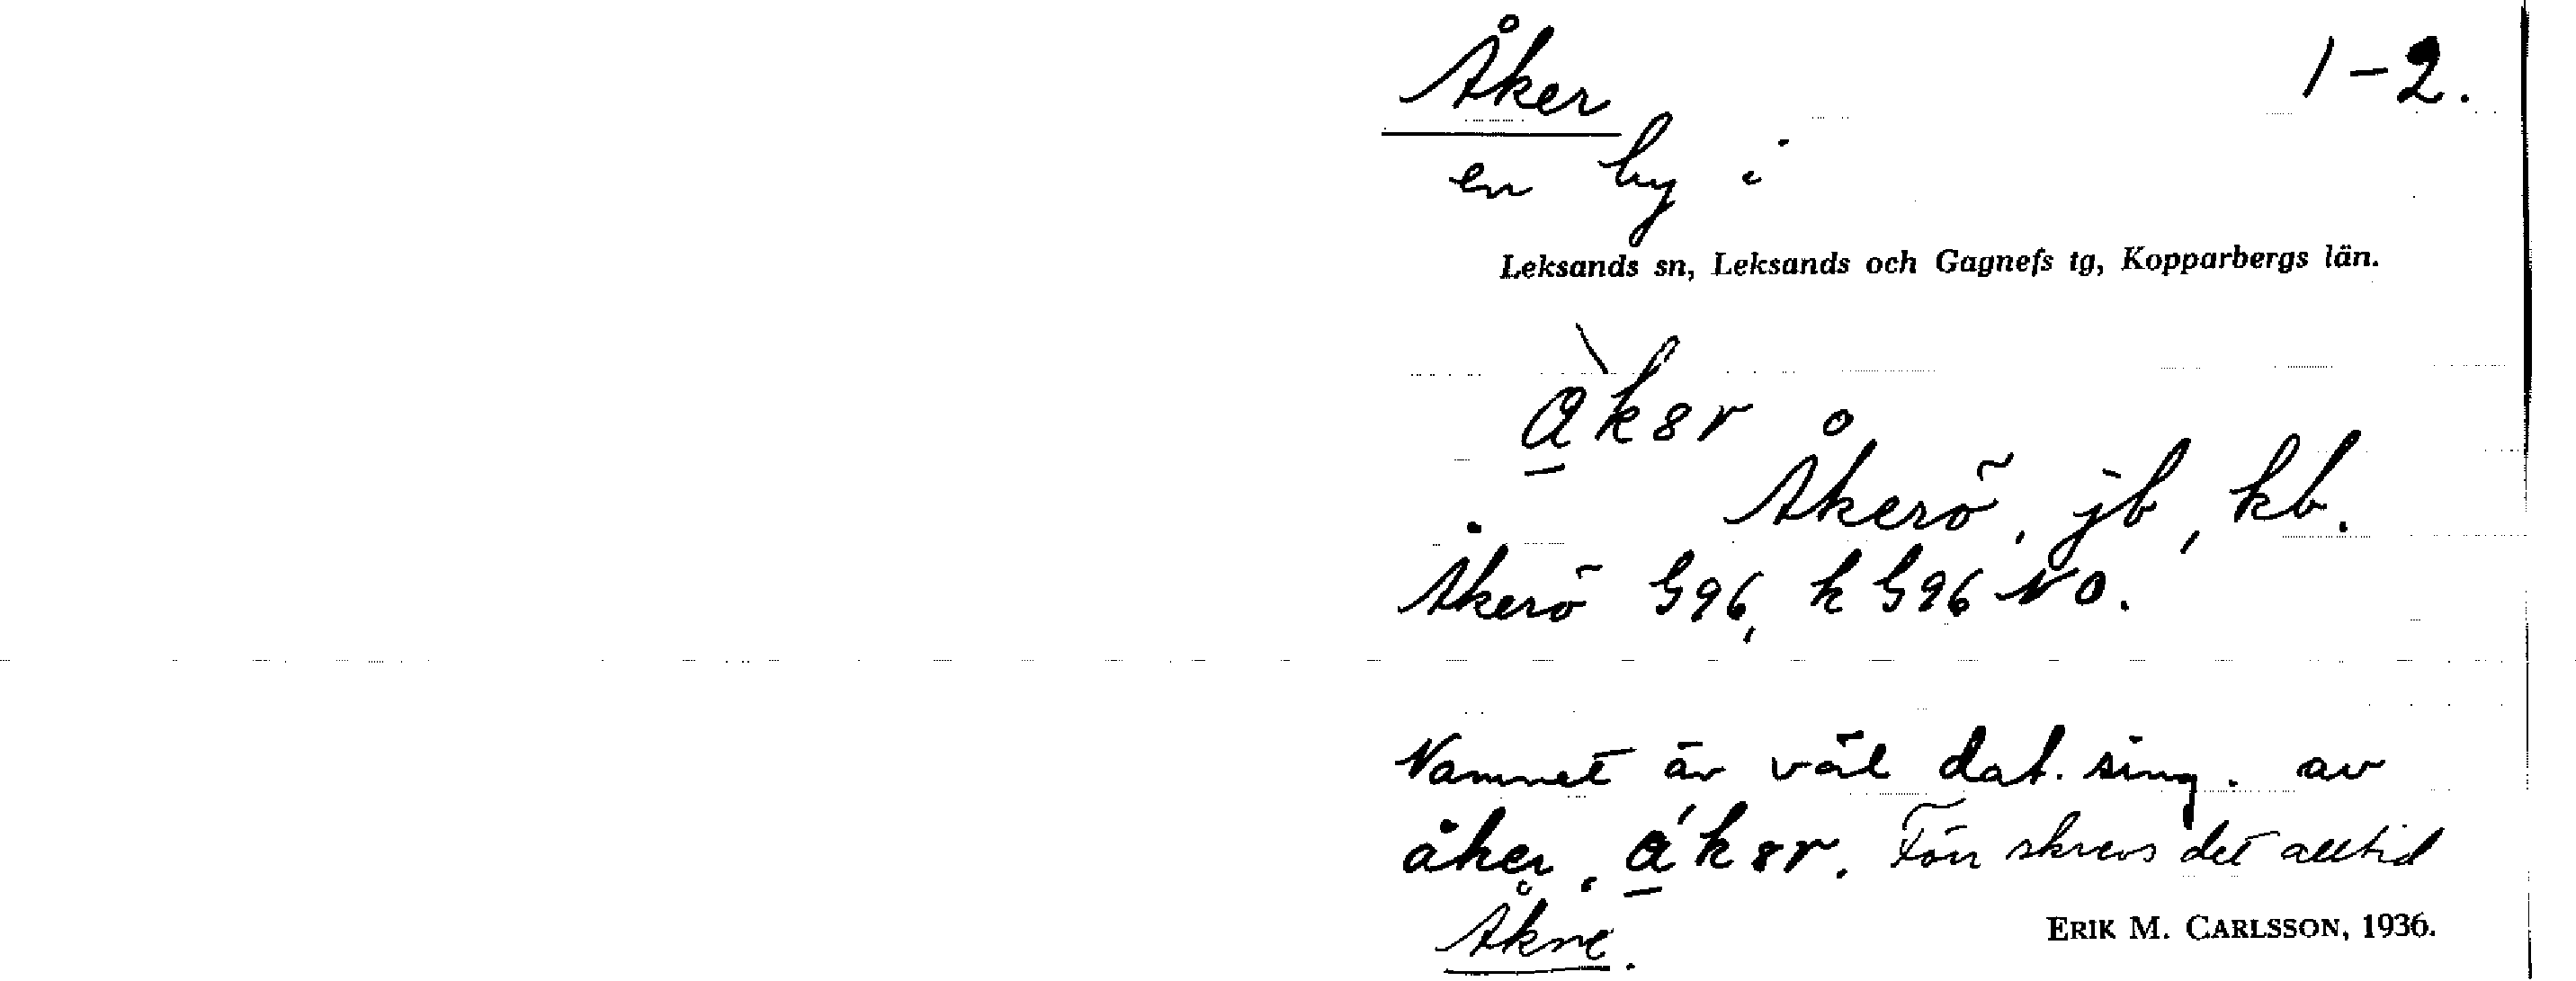 Åker 1-2.
en by i
Leksands sn, Leksands och Gagnefs tg, Kopparbergs län.
àkər
Åkerö, jb, kb.
Åkerö G96, k G96 NO.
Namnet är väl dat. sing. av
åker, ákər. Förr skrevs det alltid
Åkre.
ERIK M. CARLSSON, 1936.